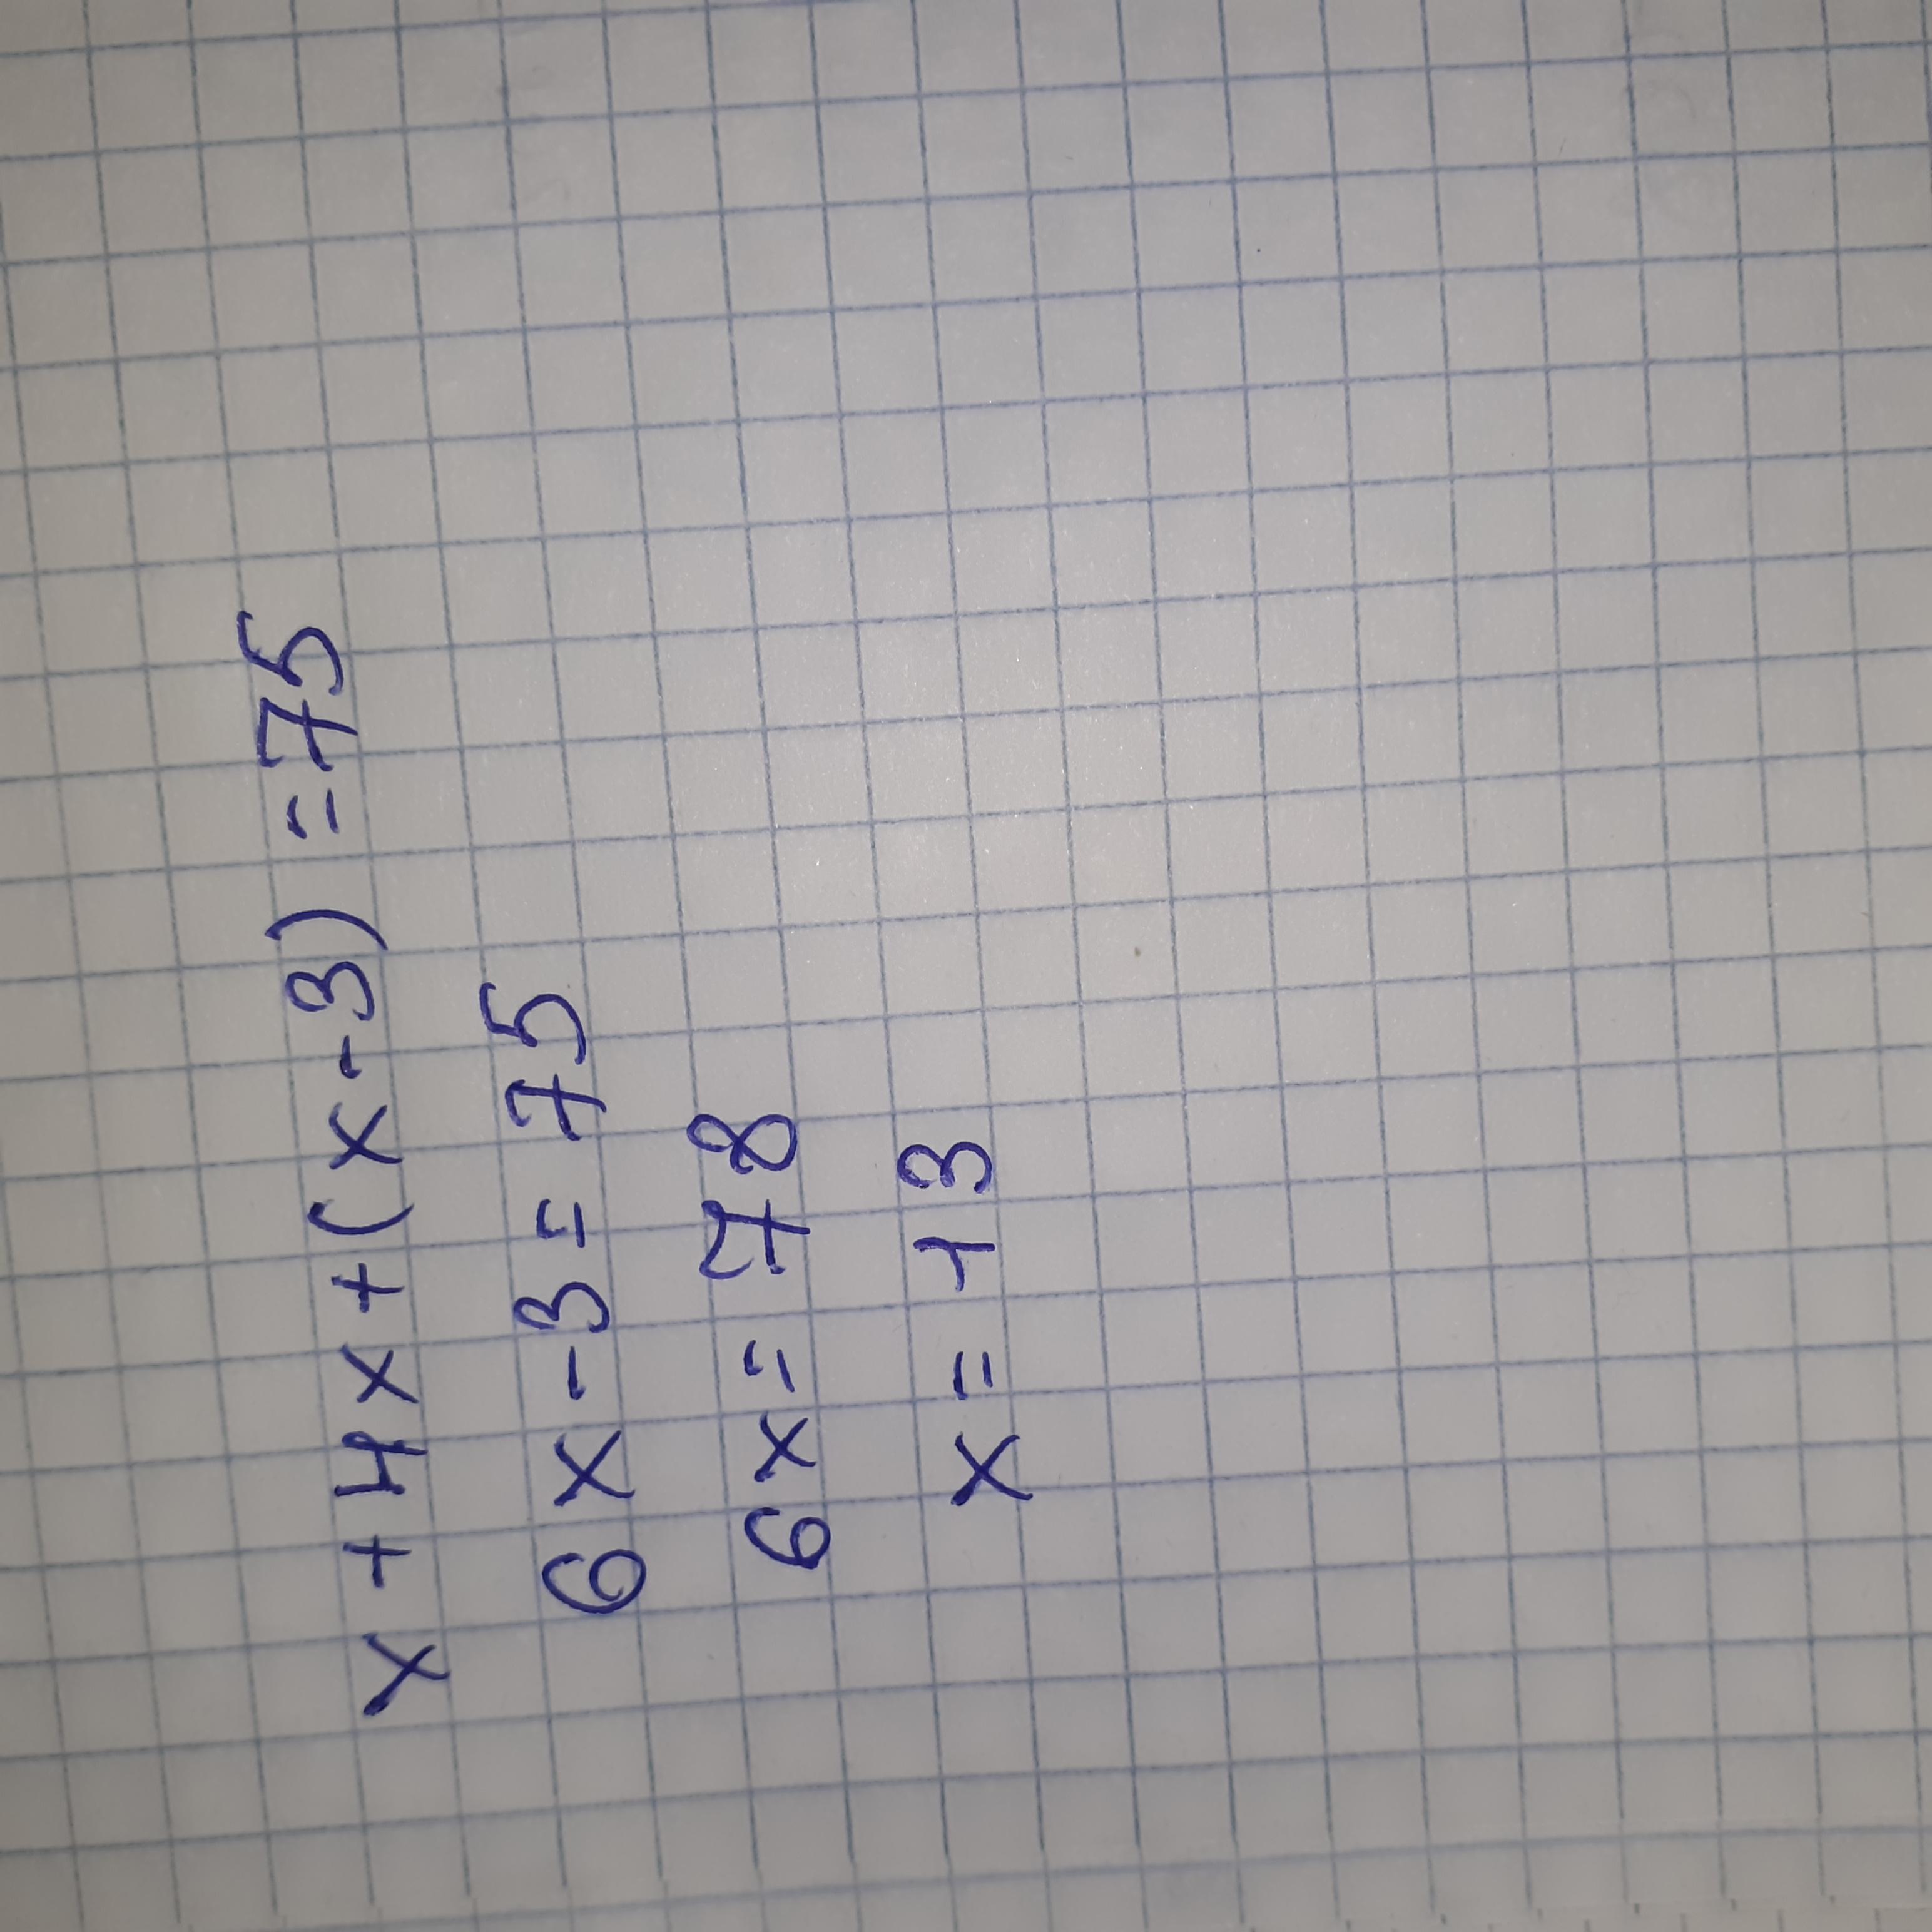 x + 4x + (x - 3) = 75
6x - 3 = 75
6x = 78
x = 13